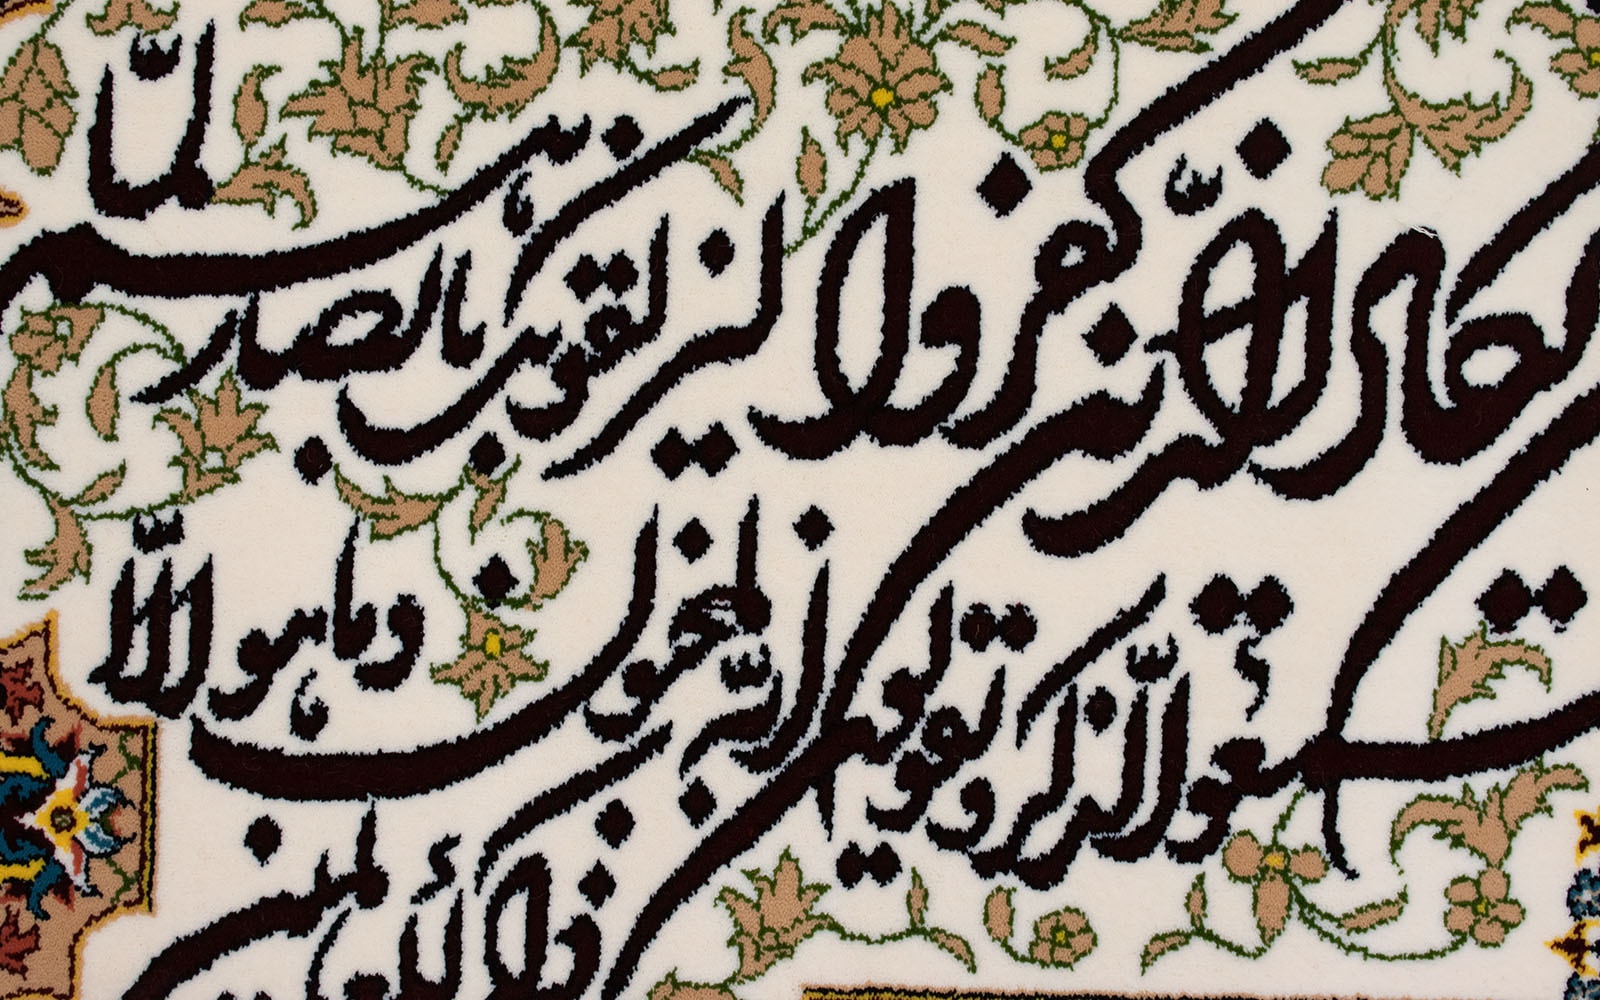 يكاد الذين كفروا ليزلقونك بابصارهم لمّا
سمعوا الذّكر و يقولون انّه لمجنون و ما هو الّا
ذكر للعالمين